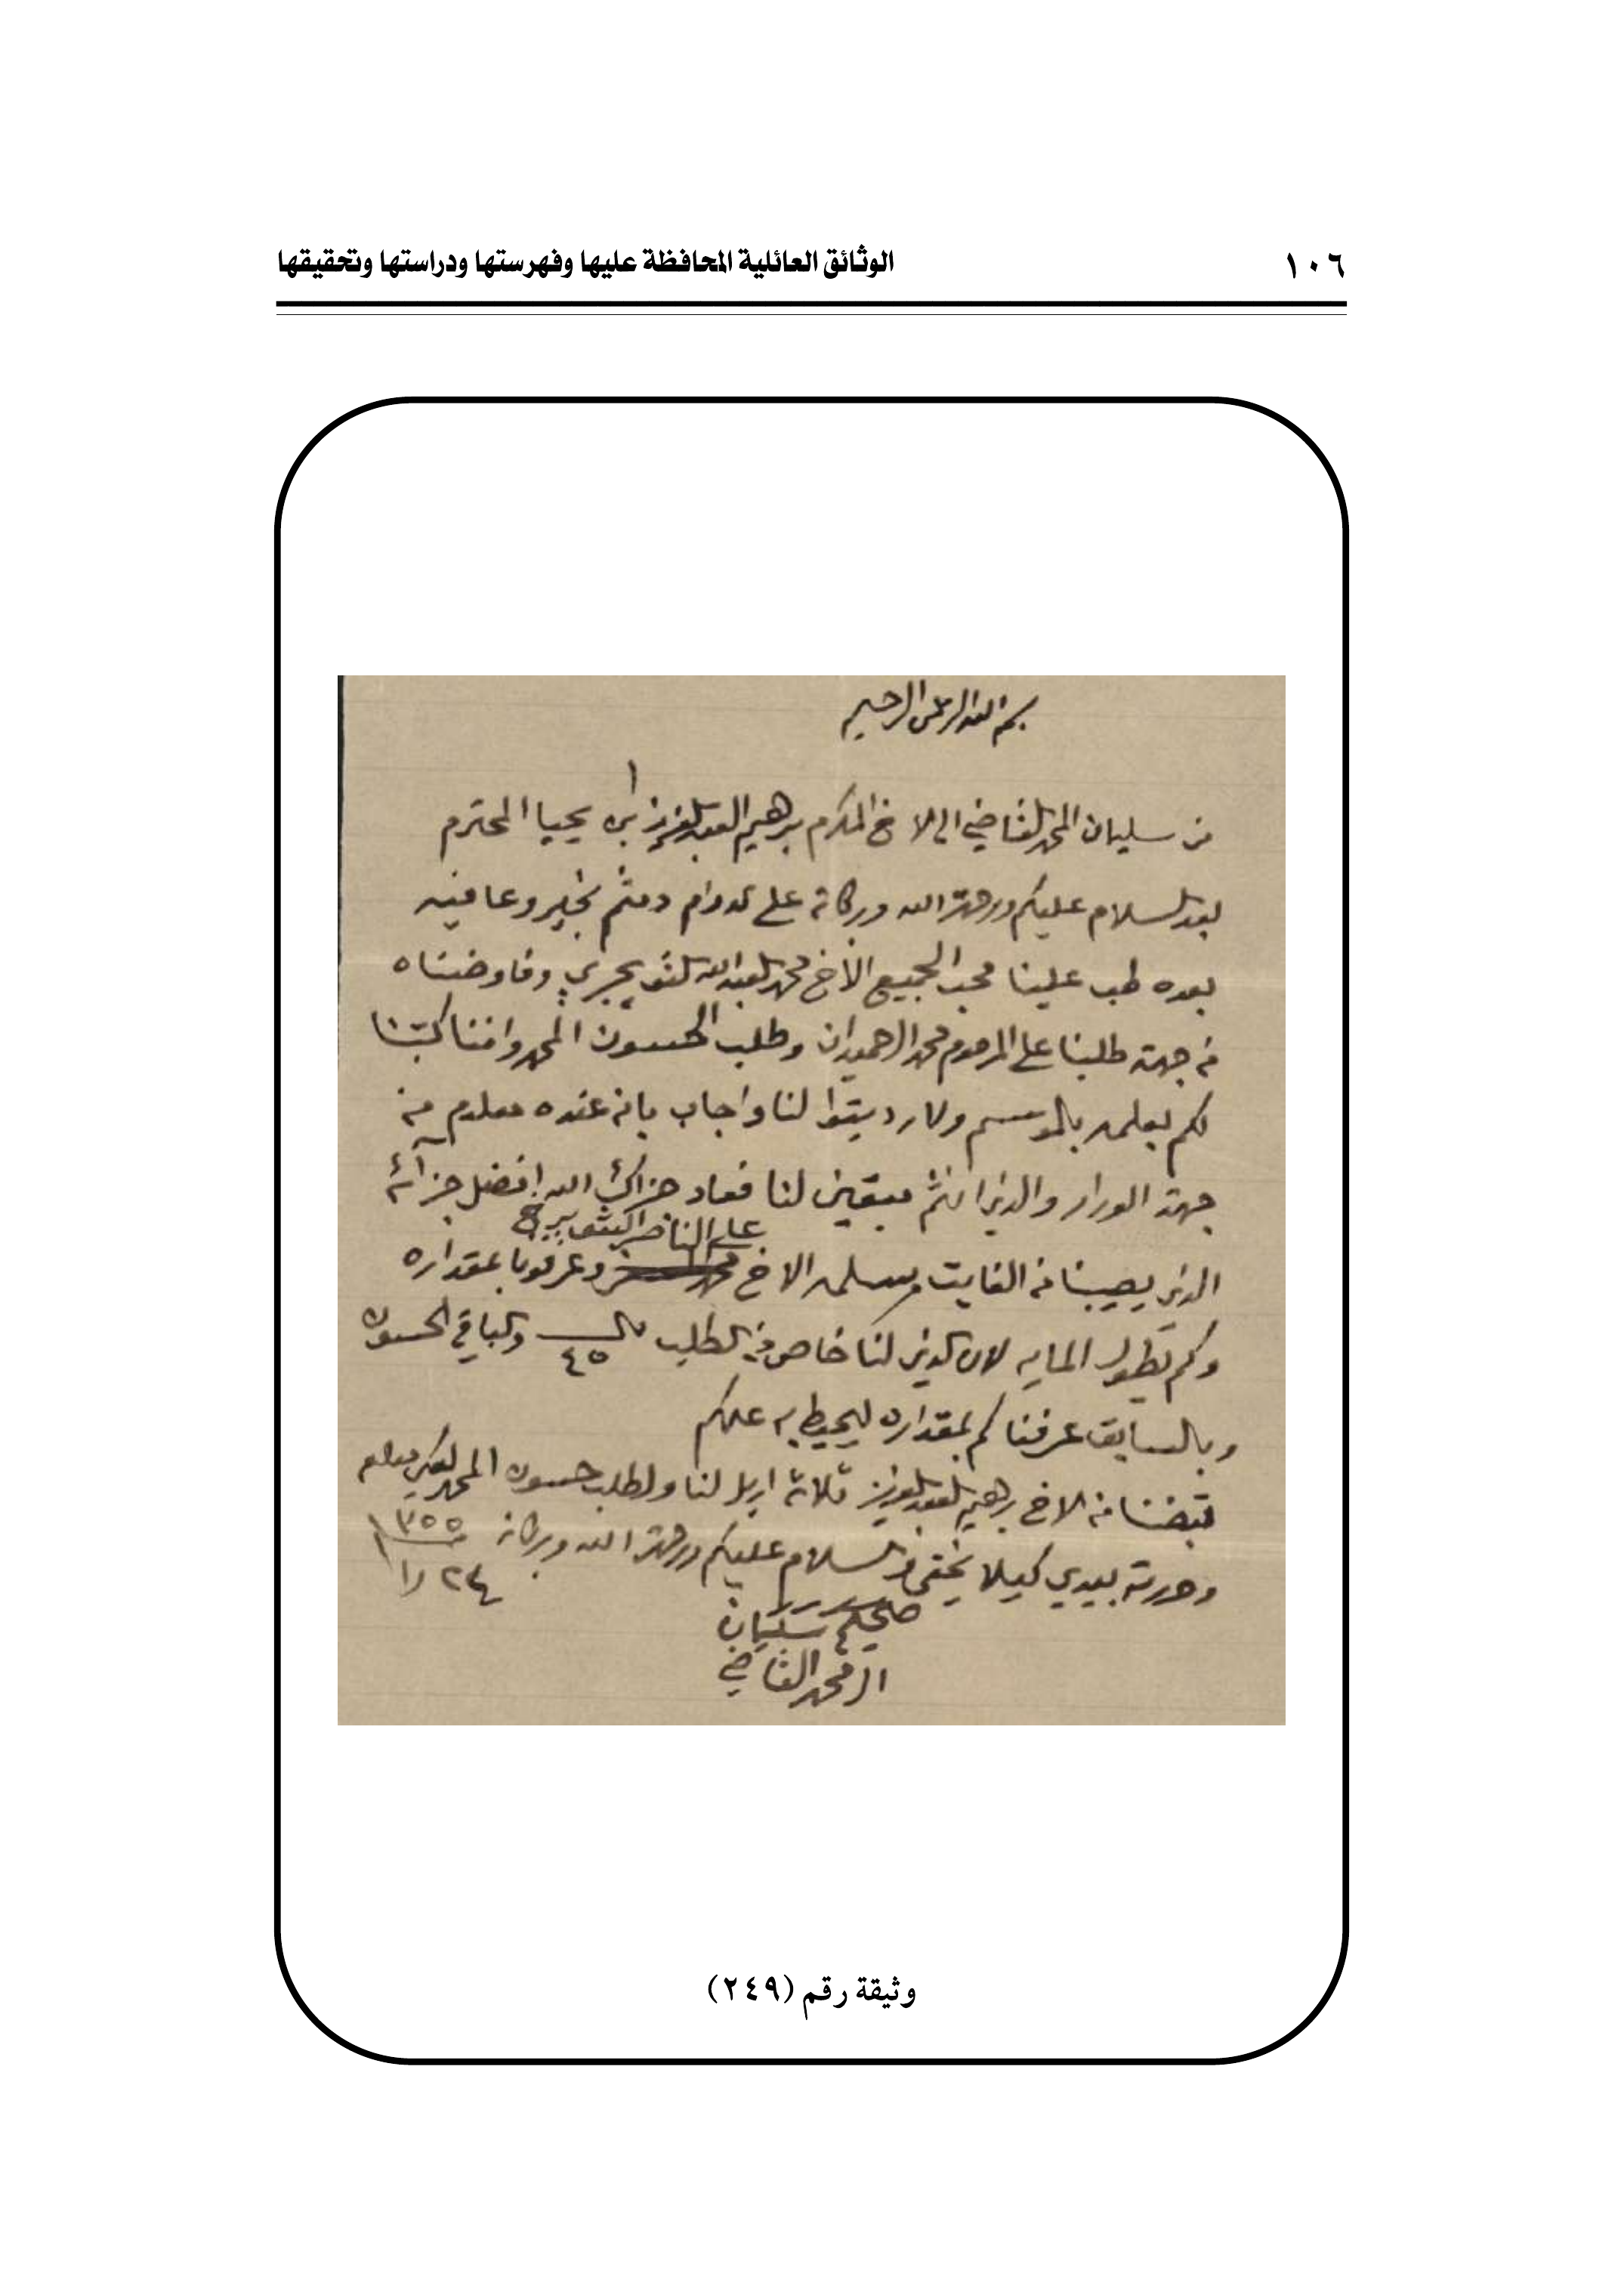 ١٠٦
الوثائق العائلية المحافظة عليها وفهرستها ودراستها وتحقيقها
بسم الله الرحمن الرحيم
من سليمان المحمد القاضي الى الاخ المكرم برهيم العبدالعزيز ال يحيا المحترم
بعد السلام عليكم ورحمة الله وبركاته على الدوام دمتم بخير وعافيه
بعده طب علينا محب الجميع الأخ محمد العبدالله التويجري وفاوضناه
من جهة طلبنا على المرحوم محمد الحميدان وطلب الحسون المحمد واننا كتبنا
لكم بعلمه بالموسم ولا رديتوا لنا واجاب بانه عنده معلوم من
جهة الورار والذي انتم مبقين لنا فعاد جزاك الله افضل جزائه
على الناصر التويجري
الذي يصيبنا من الفايت سلمه الاخ وعرفونا بمقداره
وكم يطول المايه لان الذي لنا خاص في الطلب ٤٥ والباقي الحسون
وبالسابق عرفناكم بمقداره ليحيط به علمكم
قبضنا من الاخ برهيم العبدالعزيز ثلاثة اريل لنا ولطلب حسون المحمد معلوم
وحررته بيدي كيلا يخفى والسلام عليكم ورحمة الله وبركاته ١٣٥٥
٢٤ را
سليمان
ال محمد القاضي
وثيقة رقم (٢٤٩)